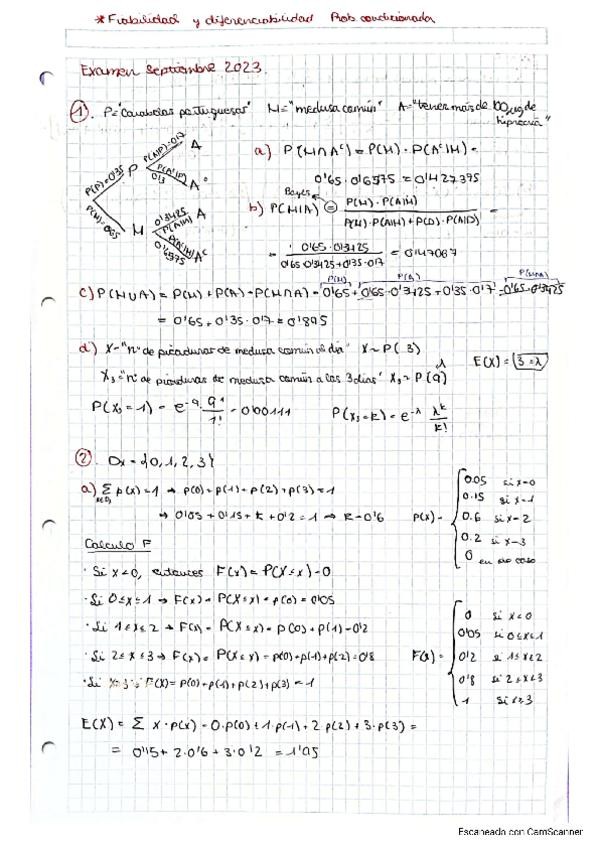 * Fiabilidad y diferenciabilidad Prob. condicionada
Examen Septiembre 2023.
①. P="Carabelas portuguesas" M="medusa común" A="tener más de 100 µg de hipnocina"
P(P)=0'35 P P(A|P)=0'7 A
P(A^c|P) 0'3 A^c
P(M)=0'65 M 0'3425 P(A|M) A
P(A^c|M) 0'6575 A^c
a) P(M∩A^c) = P(M) · P(A^c|M) =
0'65 · 0'6575 = 0'427375
Bayes
b) P(M|A) = P(M) · P(A|M) / P(M)·P(A|M)+P(P)·P(A|P) =
= 0'65 · 0'3425 / 0'65·0'3425+0'35·0'7 = 0'47607
P(M) P(A) P(M∩A)
c) P(M∪A) = P(M) + P(A) - P(M∩A) = 0'65 + 0'65·0'3425 + 0'35·0'7 - 0'65·0'3425
= 0'65 + 0'35·0'7 = 0'895
d) X="nº de picaduras de medusa común al día" X~P(3) E(X) = 3=λ
X₃="nº de picaduras de medusa común a los 3 días" X₃~P(9) λ
P(X₃=1) = e^-9 · 9^1/1! = 0'00111 P(X₃=k) = e^-λ λ^k/k!
②. Dx = {0, 1, 2, 3}
a) Σ p(x)=1 → p(0)+p(1)+p(2)+p(3)=1
→ 0'05 + 0'15 + k + 0'2 = 1 → k=0'6
P(x) = { 0.05 si x=0
0.15 si x=1
0.6 si x=2
0.2 si x=3
0 en otro caso
Calculo F
· Si x<0, entonces F(x) = P(X≤x) = 0
· Si 0≤x≤1 → F(x) = P(X≤x) = p(0) = 0'05
· Si 1≤x≤2 → F(x) = P(X≤x) = p(0) + p(1) = 0'2
· Si 2≤x≤3 → F(x) = P(X≤x) = p(0)+p(1)+p(2) = 0'8
· Si x≥3 F(x) = p(0)+p(1)+p(2)+p(3) = 1
F(x) = { 0 si x<0
0'05 si 0≤x<1
0'2 si 1≤x<2
0'8 si 2≤x<3
1 si x≥3
E(X) = Σ x·p(x) = 0·p(0) + 1·p(1) + 2·p(2) + 3·p(3) =
= 0'15 + 2·0'6 + 3·0'2 = 1'95
Escaneado con CamScanner